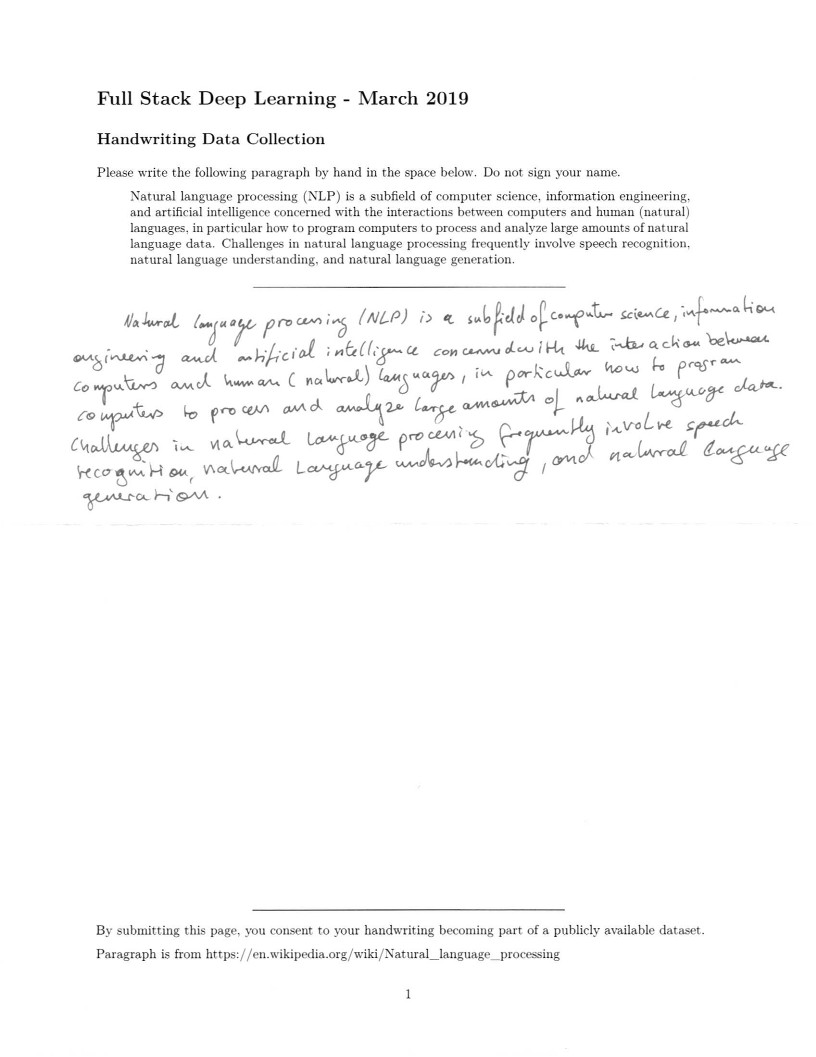 Full Stack Deep Learning - March 2019
Handwriting Data Collection
Please write the following paragraph by hand in the space below. Do not sign your name.
Natural language processing (NLP) is a subfield of computer science, information engineering,
and artificial intelligence concerned with the interactions between computers and human (natural)
languages, in particular how to program computers to process and analyze large amounts of natural
language data. Challenges in natural language processing frequently involve speech recognition,
natural language understanding, and natural language generation.
Natural language processing (NLP) is a subfield of computer science, information
engineering and artificial intelligence concerned with the interaction between
computers and human (natural) languages, in particular how to program
computers to process and analyze large amounts of natural language data.
Challenges in natural language processing frequently involve speech
recognition, natural language understanding, and natural language
generation.
By submitting this page, you consent to your handwriting becoming part of a publicly available dataset.
Paragraph is from https://en.wikipedia.org/wiki/Natural_language_processing
1